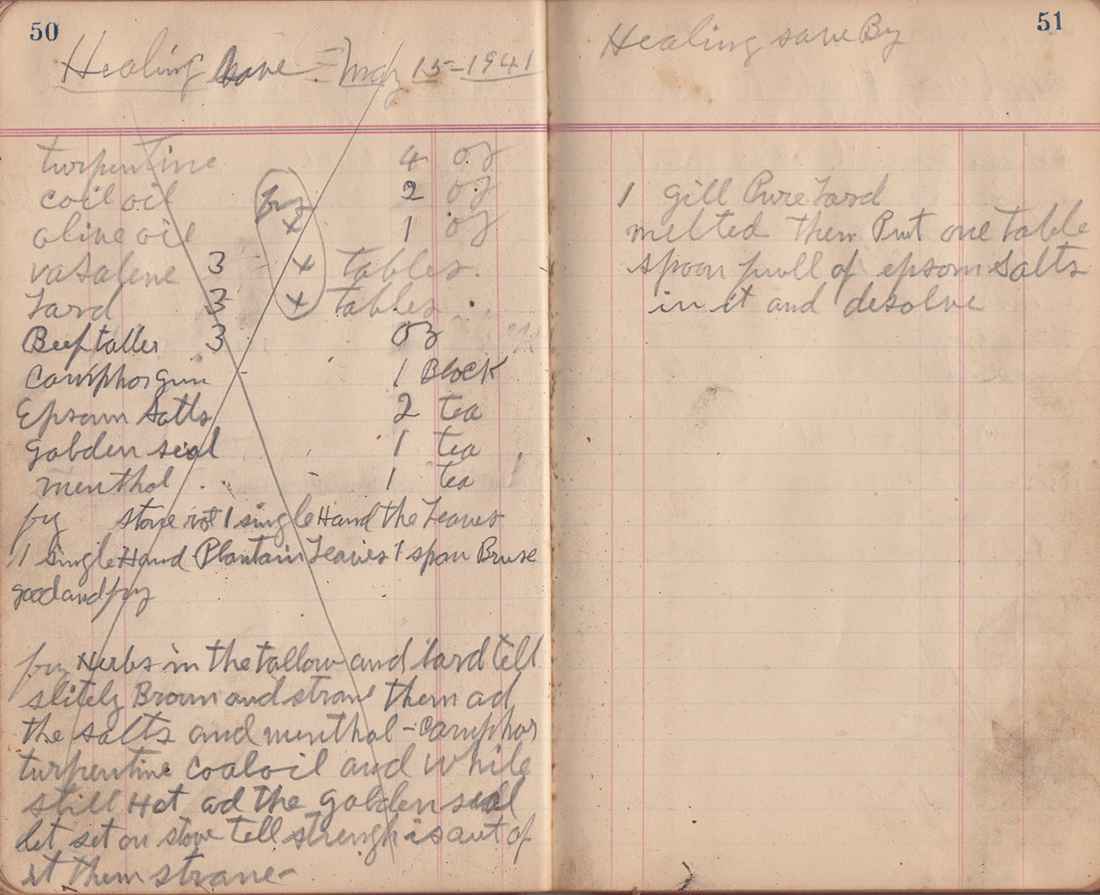 50
Healing save = May 15-1941
turpentine 4 oz
coil oil 2 oz
oline oil fry x 1 oz
vasalene 3 - x tables.
Lard 3 x tables.
Beef taller 3 oz
camphor gum 1 Block
Epsom Salts 2 tea
golden seal 1 tea
menthol 1 tea
fry stone rot 1 single Hand the Leaves
1 single Hand Plantain Leaves 1 spon Bruse
good and fry
fry Herbs in the tallow and lard tell
slitely Brown and strane them ad
the salts and menthol - camphor
turpentine coal oil and while
still Hot ad the golden seal
let set on stove tell strengh is out of
it them strane-
51
Healing save By
1 gill Pure Lard
melted then Put one table
spoon full of epsom Salts
in it and desolve